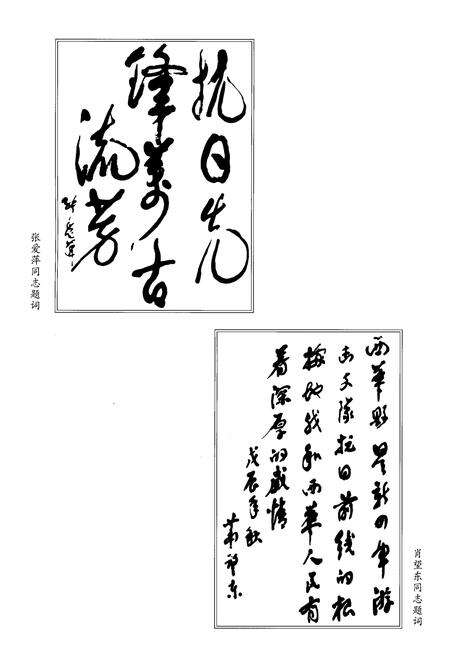 抗日先
锋萬古
流芳
张爱萍
张爱萍同志题词
西華縣是新四军游
击支隊抗日前线的根
据地我和西華人民有
着深厚的感情
戊辰年秋
萧望东
肖望东同志题词